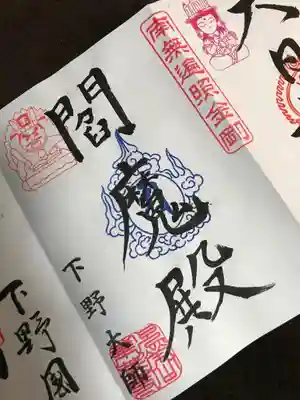 南無遍照金剛
閻魔殿
下野大師
下野国